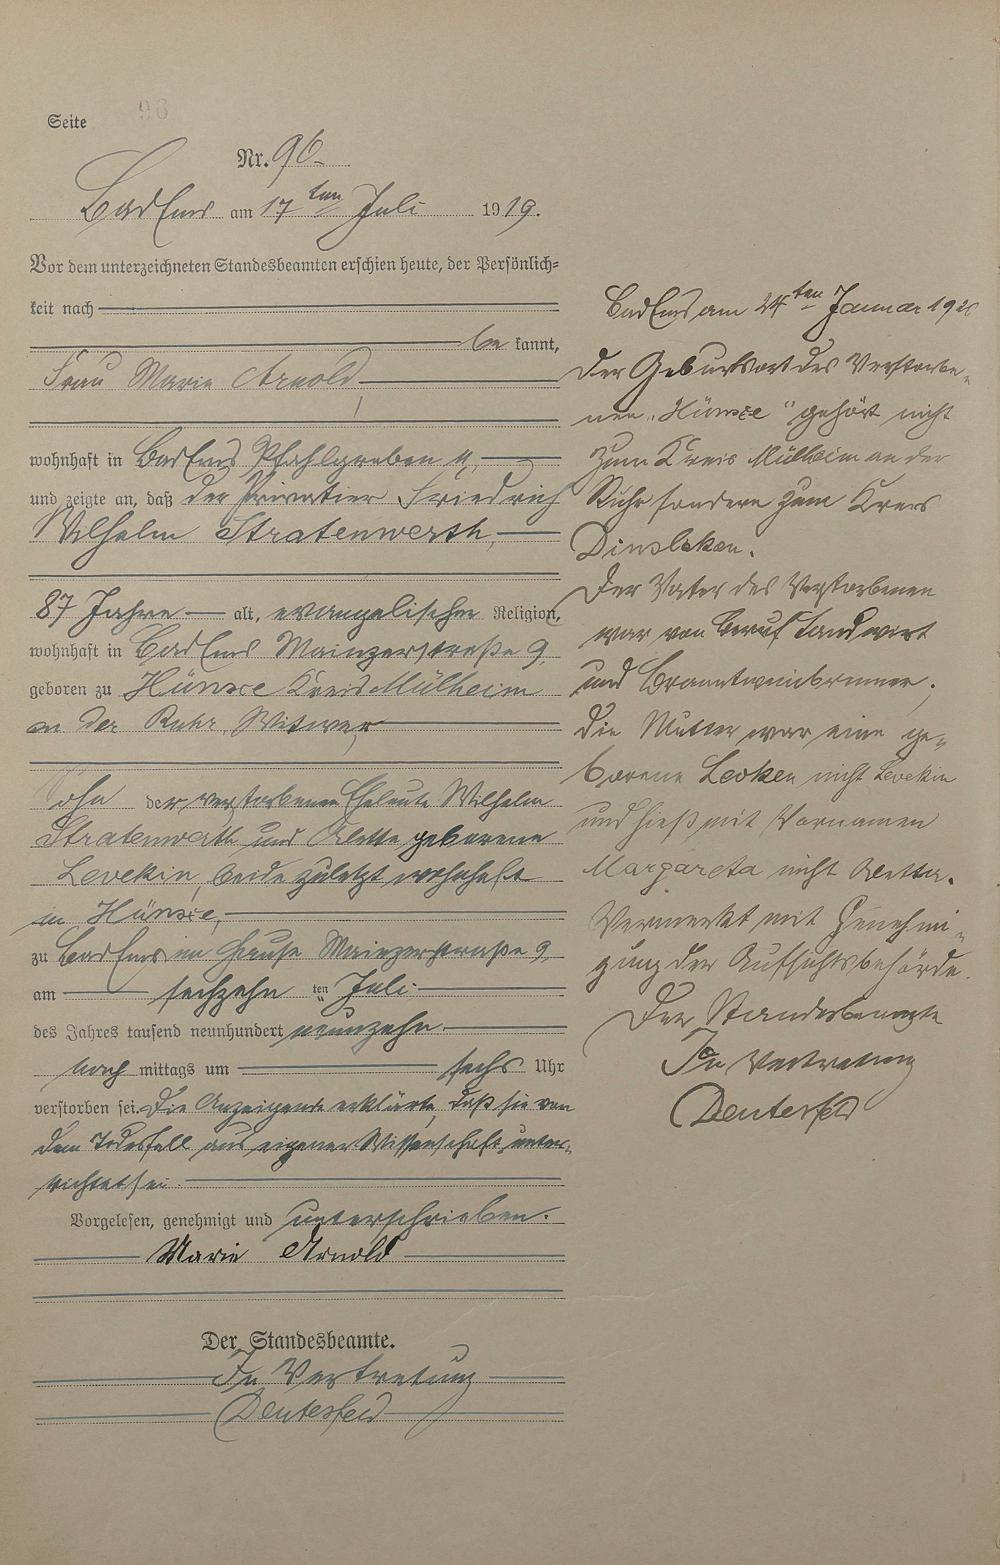 Seite 96
Nr. 96.
Bad Ems am 17ten Juli 1919.
Vor dem unterzeichneten Standesbeamten erschien heute, der Persönlich-
keit nach
be kannt,
Frau Marie Arnold,
wohnhaft in Bad Ems Pfahlgraben 4,
und zeigte an, daß der Privatier Friedrich
Wilhelm Stratenwerth,
87 Jahre alt, evangelischer Religion,
wohnhaft in Bad Ems Mainzerstraße 9,
geboren zu Hünxe Kreis Mülheim
an der Ruhr, Witwer
Sohn der verstorbenen Eheleute Wilhelm
Stratenwerth und Aletta geborene
Levekin, beide zuletzt wohnhaft
in Hünxe,
zu Bad Ems im Hause Mainzerstraße 9,
am sechzehn ten Juli
des Jahres tausend neunhundert neunzehn
nach mittags um sechs Uhr
verstorben sei. Die Anzeigende erklärte, daß sie von
dem Todesfall aus eigener Wissenschaft unter-
richtet sei.
Vorgelesen, genehmigt und unterschrieben.
Marie Arnold
Der Standesbeamte.
In Vertretung
Deutesfeld
Bad Ems am 24ten Januar 1920
Der Geburtsort des Verstorbe-
nen „Hünxe" gehört nicht
zum Kreis Mülheim an der
Ruhr sondern zum Kreis
Dinslaken.
Der Vater des Verstorbenen
war von Beruf Landwirt
und Branntweinbrenner.
Die Mutter war eine ge-
borene Levken nicht Levekin
und hieß mit Vornamen
Margareta nicht Aletta.
Vermerkt mit Genehmi-
gung der Aufsichtsbehörde.
Der Standesbeamte
In Vertretung
Deutesfeld